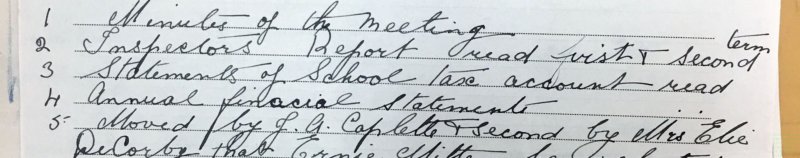 1 Minutes of the meeting
2 Inspectors Report read first & second term
3 Statements of School tax account read
4 Annual finacial statements
5 Moved by J. A. Caplette & second by Mrs Elie
DeCorby that Ernie